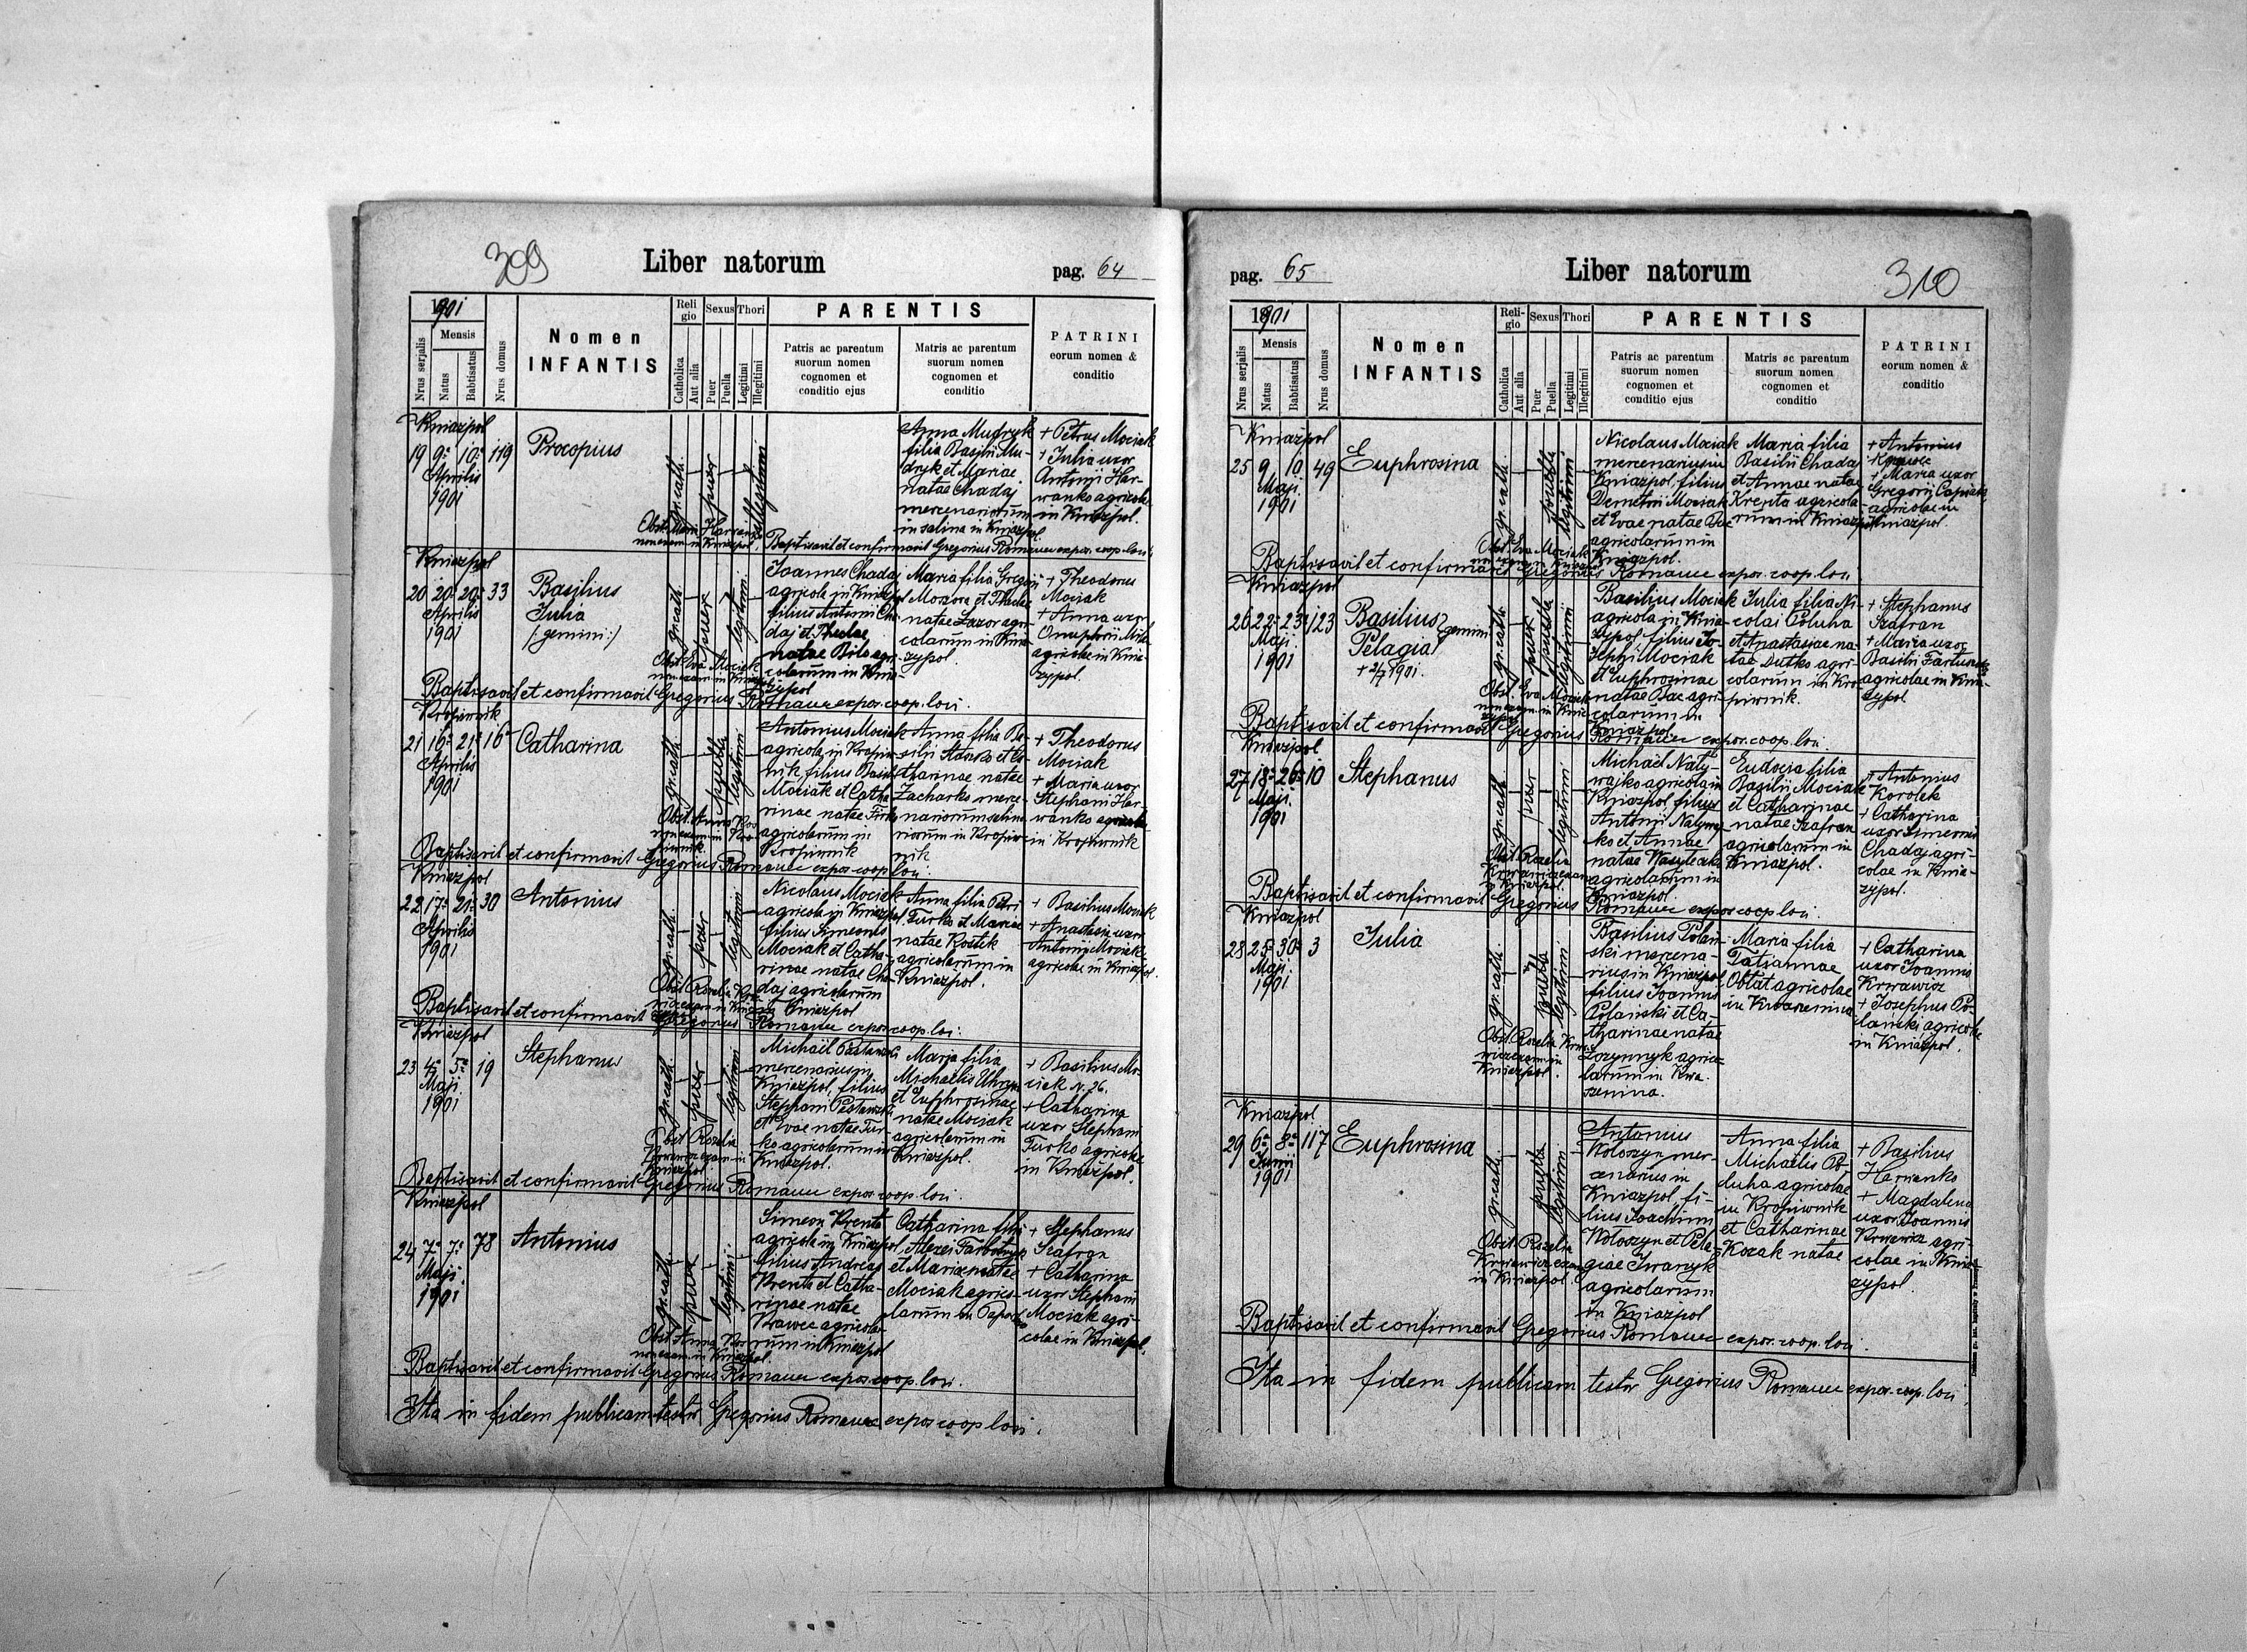 309
Liber natorum
pag. 64
1901
Nrus serjalis
Mensis
Natus
Babtisatus
Nrus domus
Nomen
INFANTIS
Reli
gio
Catholica
Aut alia
Sexus
Puer
Puella
Thori
Legitimi
Illegitimi
PARENTIS
Patris ac parentum
suorum nomen
cognomen et
conditio ejus
Matris ac parentum
suorum nomen
cognomen et
conditio
PATRINI
eorum nomen &
conditio
Kniazpol
19 9. 10. 119
Aprilis
1901
Procopius
gr. cath.
puer
illegitimi
Anna Mudryk
filia Basilii Mu-
dryk et Mariae
natae Chadaj
mercenariorum
in salina in Kniazpol.
+ Petrus Mociak
+ Julia uxor
Antonii Har-
wanko agricolae
in Kniazpol.
non exam. in Kniazpol
Baptisavit et confirmavit Gregorius Romanec expos. coop. loci
Kniazpol
20 20. 20. 33
Aprilis
1901
Basilius
Julia
(: gemini :)
gr. cath.
puer
legitimi
Joannes Chadaj
agricola in Kniazpol
filius Antonii Cha
daj et Theclae
natae Bilo agri-
colarum in Knia-
zypol
Maria filia Gregorii
et Theclae
natae Lazor agri-
colarum in Knia-
zypol.
+ Theodorus
Mociak
+ Anna uxor
Onuphrii
agricolae in Knia-
zypol.
Obst. Eva Mociak
non exam. in Kniazpol
Baptisavit et confirmavit Gregorius Romanec expos. coop. loci.
Kropiwnik
21 16. 21. 16
Aprilis
1901
Catharina
gr. cath.
puella
legitimi
Antonius Mociak
agricola in Kropiw-
nik, filius Basilii
Mociak et Catha-
rinae natae Turko
agricolarum in
Kropiwnik
Anna filia Ba-
silii et Ca-
tharinae natae
Zacharko merce-
nariorum
in Kropiw-
nik
+ Theodorus
Mociak
+ Maria uxor
Stephani Har-
wanko agricolae
in Kropiwnik
Baptisavit et confirmavit Gregorius Romanec expos. coop. loci.
Kniazpol
22 17. 21. 30
Aprilis
1901
Antonius
gr. cath.
puer
legitimi
Nicolaus Mociak
agricola in Kniazpol
filius Simeonis
Mociak et Catha-
rinae natae Cha-
daj agricolarum
Kniazpol
Anna filia Petri
Turko et Mariae
natae Kostek
agricolarum in
Kniazpol.
+ Basilius Mociak
+ Anastasia uxor
Antonii Mociak
agricolae in Kniazpol.
Baptisavit et confirmavit Gregorius Romanec expos. coop. loci.
Kniazpol
23 4. 5. 19
Maji
1901
Stephanus
gr. cath.
puer
legitimi
Michaël
mercenarius in
Kniazpol, filius
Stephani
et Evae natae Tur-
ko agricolarum in
Kniazpol.
Maria filia
Michaëlis
et Euphrosinae
natae Mociak
agricolarum in
Kniazpol.
+ Basilius Mo-
ciak N. 26.
+ Catharina
uxor Stephani
Turko agricolae
in Kniazpol.
Obst. Rozalia
Krwawicz exam. in
Kniazpol.
Baptisavit et confirmavit Gregorius Romanec expos. coop. loci.
Kniazpol
24 7. 7. 78
Maji
1901
Antonius
gr. cath.
puer
legitimi
Simeon Krenta
agricola in Kniazpol
filius Andreae
Krenta et Catha-
rinae natae
Krawec agricola-
rum in Kniazpol
Catharina filia
Alexei
et Mariae natae
Mociak agrico-
larum in
+ Stephanus
Szafran
+ Catharina
uxor Stephani
Mociak agri-
colae in Kniazpol.
non exam. in Kniazpol.
Baptisavit et confirmavit Gregorius Romanec expos. coop. loci.
Ita in fidem publicam testor Gregorius Romanec expos coop loci.
pag. 65
Liber natorum
310
1901
Nrus serjalis
Mensis
Natus
Babtisatus
Nrus domus
Nomen
INFANTIS
Reli-
gio
Catholica
Aut alia
Sexus
Puer
Puella
Thori
Legitimi
Illegitimi
PARENTIS
Patris ac parentum
suorum nomen
cognomen et
conditio ejus
Matris ac parentum
suorum nomen
cognomen et
conditio
PATRINI
eorum nomen &
conditio
Kniazpol
25 9 10 49
Maji
1901
Euphrosina
gr. cath.
puella
legitimi
Nicolaus Mociak
mercenarius in
Kniazpol, filius
Demetrii Mociak
et Evae natae
agricolarum in
Kniazpol.
Maria filia
Basilii Chadaj
et Annae natae
Krenta agricola-
rum in Kniazpol
+ Antonius
Krawec
+ Maria uxor
Gregorii
agricolae in
Kniazpol.
Obst. Eva Mociak
Baptisavit et confirmavit Gregorius Romanec expos. coop. loci
Kniazpol
26 22. 23. 123
Maji
1901
Basilius
Pelagia
gemini
+ 2/7 1901.
gr. cath.
puer
puella
legitimi
Basilius Mociak
agricola in Knia-
zypol, filius Jo-
sephi Mociak
et Euphrosinae
natae agri-
colarum in
Kniazpol
Julia filia Ni-
colai Poluha
et Anastasiae na-
tae Dutko agri-
colarum in Kro-
piwnik.
+ Stephanus
Szafran
+ Maria uxor
Basilii
agricolae in Knia-
zypol
Obst. Eva Mociak
Baptisavit et confirmavit Gregorius Romanec expos. coop. loci.
Kniazpol
27 18. 26. 10
Maji.
1901
Stephanus
gr. cath.
puer
legitimi
Michaël Naty-
wajko agricola in
Kniazpol, filius
Antonii Natyway-
ko et Annae
natae
agricolarum in
Kniazpol.
Eudocia filia
Basilii Mociak
et Catharinae
natae Szafran
agricolarum in
Kniazpol.
+ Antonius
Korolek
+ Catharina
uxor Simeonis
Chadaj agri-
colae in Knia-
zypol.
Obst. Rozalia
Krwawicz exam.
in Kniazpol.
Baptisavit et confirmavit Gregorius Romanec expos coop loci.
Kniazpol
28 25. 30. 3
Maji.
1901
Julia
gr. cath.
puella
legitimi
Basilius Polan-
ski mercena-
rius in Kniazpol
filius Joannis
Polański et Ca-
tharinae natae
Lozynnyk agrico-
larum in Kwa-
szenina.
Maria filia
Tatiannae
Oblat agricolae
in Kwaszenina
+ Catharina
uxor Joannis
Krwawicz
+ Josephus Po-
lański agricolae
in Kniazpol.
Obst. Rozalia Krwa-
wicz exam in
Kniazpol.
Kniazpol
29 6. 8. 117
Junii
1901
Euphrosina
gr. cath.
puella
legitimi
Antonius
Woloszyn mer-
cenarius in
Kniazpol fi-
lius Joachimi
Woloszyn et Pela-
giae Iwanyk
agricolarum
in Kniazpol
Anna filia
Michaëlis Po-
luha agricolae
in Kropiwnik
et Catharinae
Kozak natae
+ Basilius
Harwanko
+ Magdalena
uxor Joannis
Krwawicz agri-
colae in Knia-
zypol.
Obst. Rozalia
Krwawicz exam.
in Kniazpol.
Baptisavit et confirmavit Gregorius Romanec expos. coop. loci.
Ita in fidem publicam testor Gregorius Romanec expos. coop. loci.